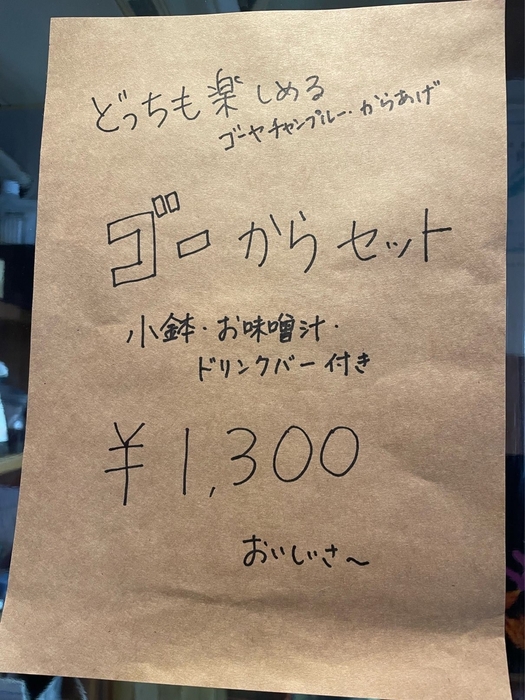 どっちも楽しめる
ゴーヤチャンプルー・からあげ
ゴーからセット
小鉢・お味噌汁・
ドリンクバー付き
¥1,300
おいしいさ～